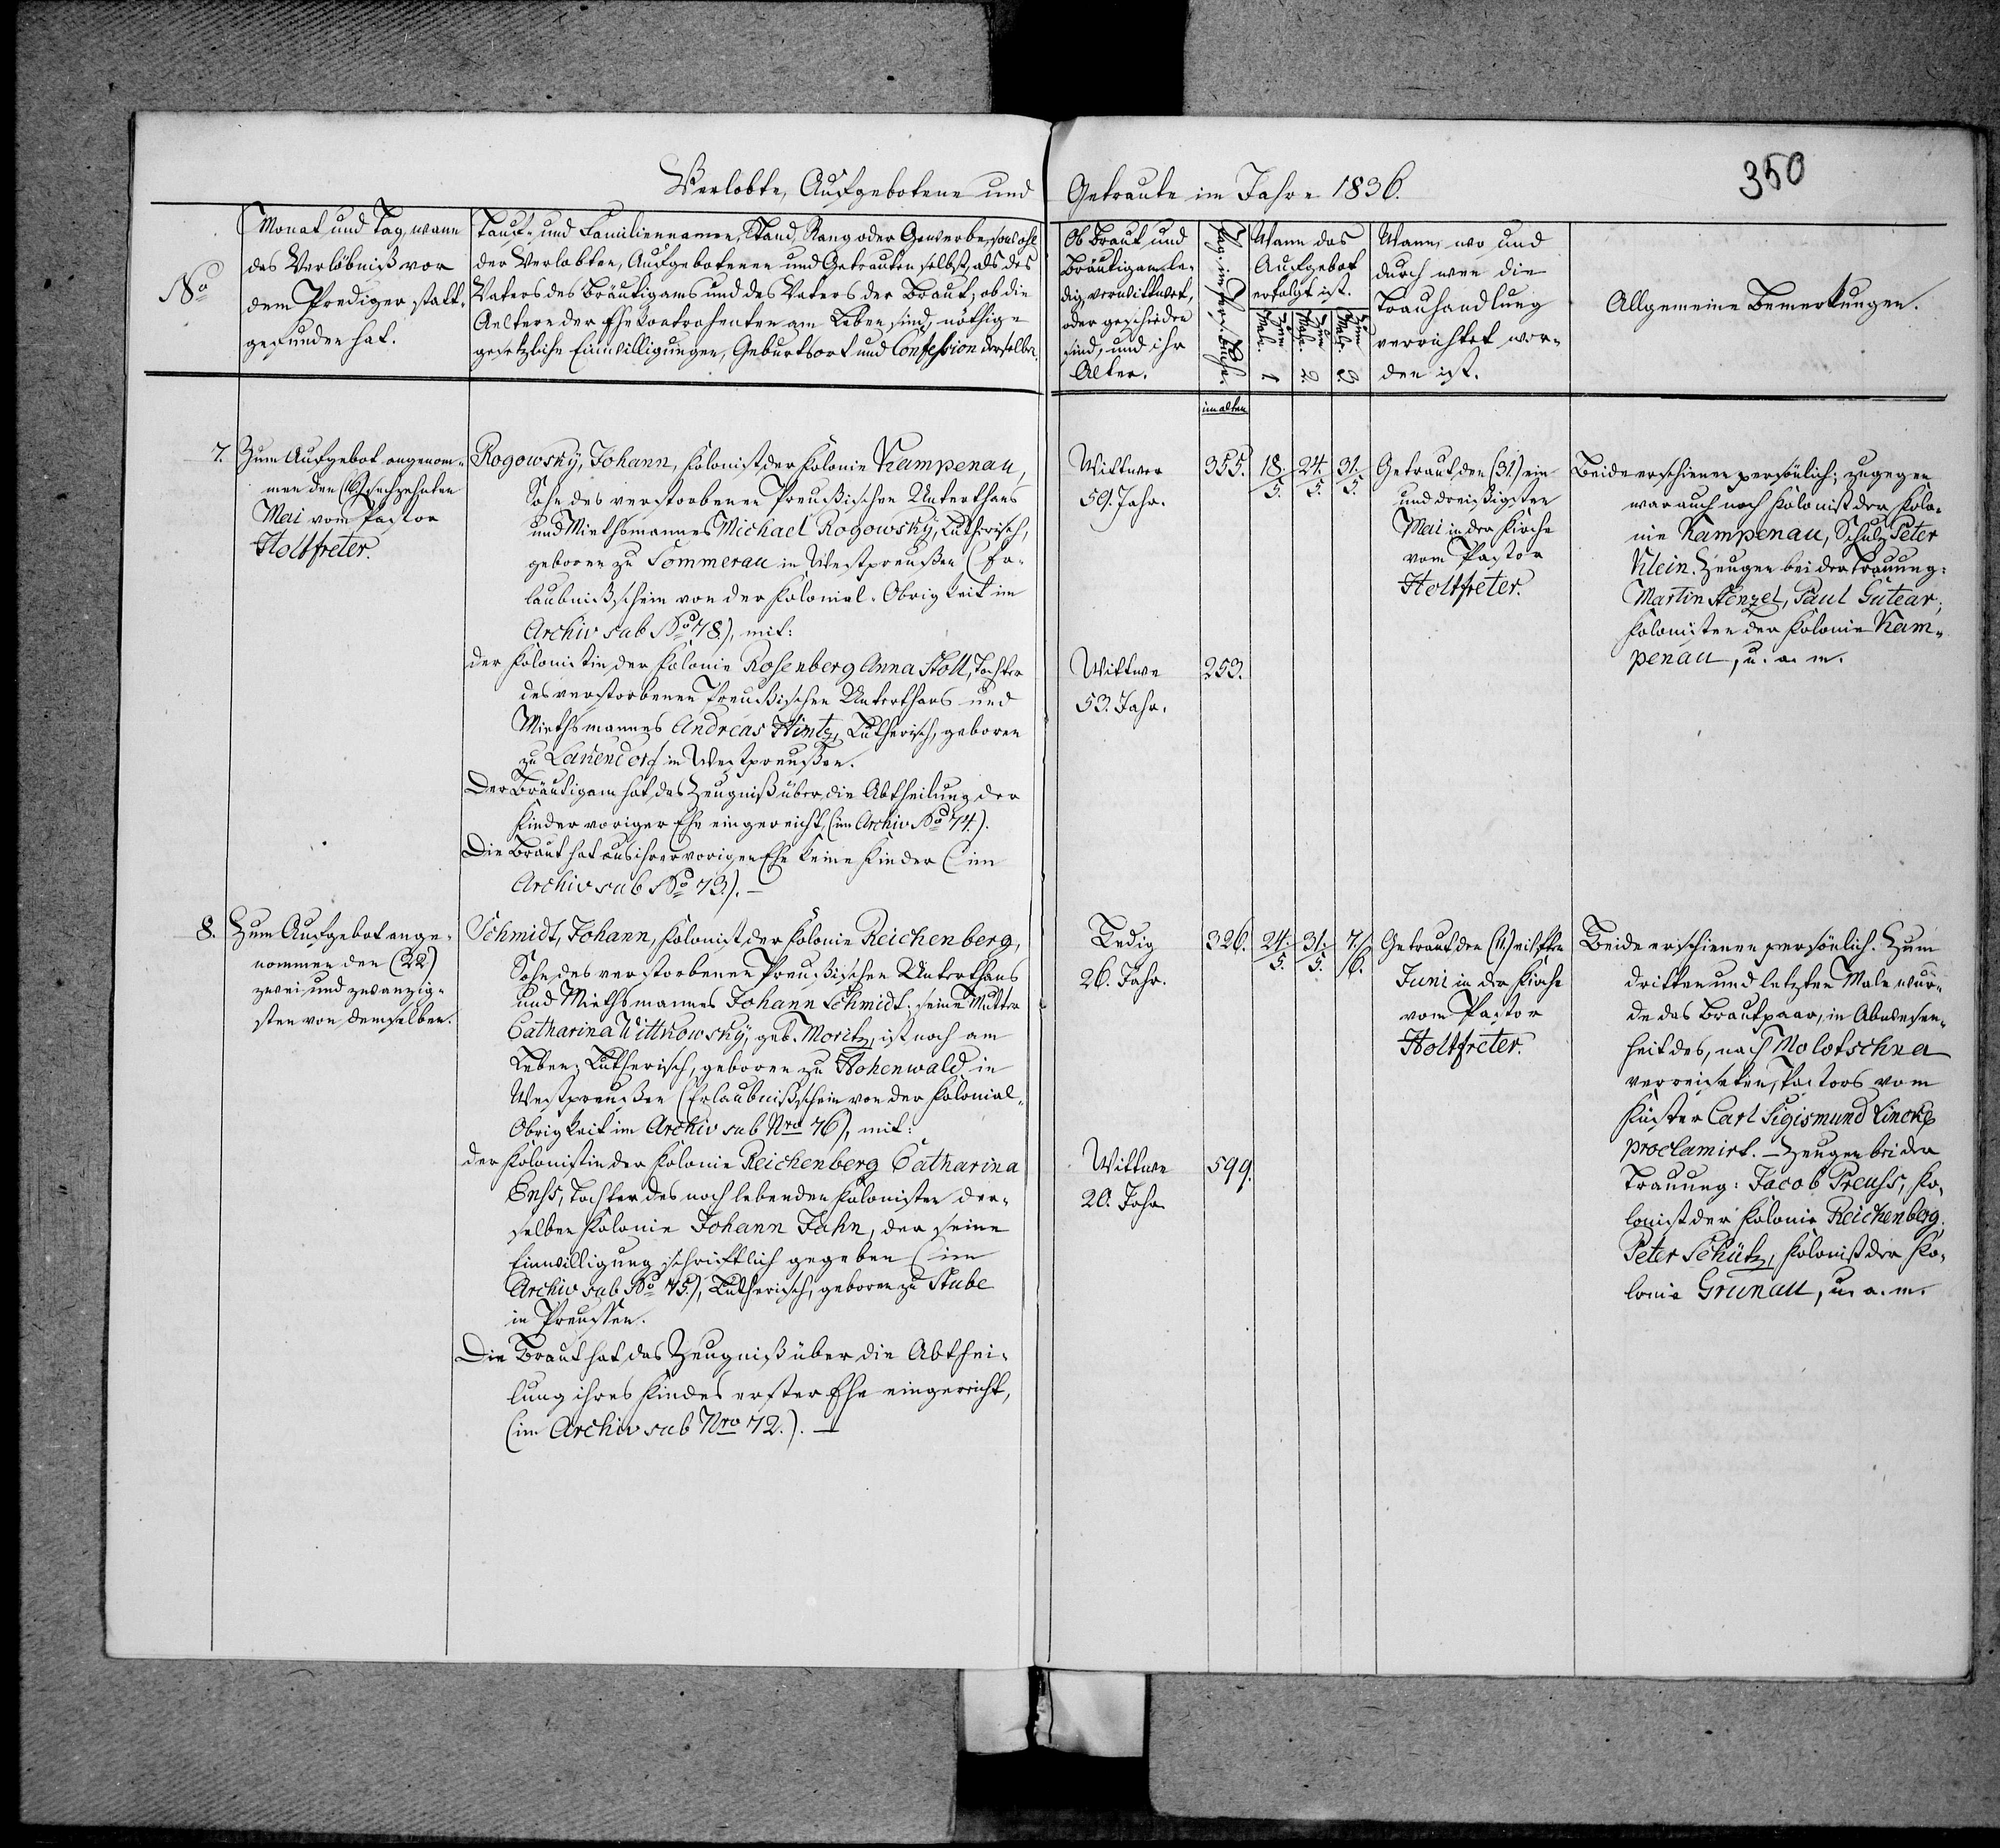 Verlobte, Aufgebotene und
Getraute im Jahre 1836.
350
No
Monat und Tag, wann
das Verlöbniß vor
dem Prediger statt-
gefunden hat.
Tauf- und Familiennamen, Stand, Rang oder Gewerbe, sowohl
der Verlobten, Aufgebotenen und Getrauten selbst, als des
Vaters des Bräutigams und des Vaters der Braut; ob die
Aeltern der Ehekontrahenten am Leben sind, nöthige
gesetzliche Einwilligungen, Geburtsort und Confession derselben.
Ob Braut und
Bräutigam le-
dig, verwittwet,
oder geschieden
sind, und ihr
Alter.
Pag. im Pers. buche.
Wann das
Aufgebot
erfolgt ist.
Zum 1. Male.
Zum 2. Male.
Zum 3. Male.
Wann, wo und
durch wen die
Trauhandlung
verrichtet wor-
den ist.
Allgemeine Bemerkungen.
im alten
7.
Zum Aufgebot angenom-
men den (16) sechzehnten
Mai vom Pastor
Holtfreter.
Rogowsky, Johann, Kolonist der Kolonie Kampenau,
Sohn des verstorbenen Preußischen Unterthans
und Miethsmannes Michael Rogowsky, Lutherisch,
geboren zu Sommerau in Westpreußen (Er-
laubnißschein von der Kolonial-Obrigkeit im
Archiv sub No 78.), mit:
der Kolonistin der Kolonie Rosenberg Anna Stoll, Tochter
des verstorbenen Preußischen Unterthans und
Miethsmannes Andreas Hintz, Lutherisch, geboren
zu Lanendorf in Westpreußen.
Der Bräutigam hat das Zeugniß über die Abtheilung der
Kinder voriger Ehe eingereicht, (im Archiv No 74.).
Die Braut hat aus ihrer vorigen Ehe keine Kinder (im
Archiv sub No 73.). —
Wittwer
59. Jahr.
355.
18./5.
24./5.
31./5.
Getraut den (31.) ein
und dreißigsten
Mai in der Kirche
vom Pastor
Holtfreter.
Beide erschienen persönlich; zugegen
war auch noch Kolonist der Kolo-
nie Kampenau, Schulz Peter
Klein. Zeugen bei der Trauung:
Martin Stenzel, Paul Gutear,
Kolonisten der Kolonie Kam-
penau, u. a. m.
Wittwe
53. Jahr.
253.
8.
Zum Aufgebot ange-
nommen den (22.)
zwei und zwanzig-
sten von demselben.
Schmidt, Johann, Kolonist der Kolonie Reichenberg,
Sohn des verstorbenen Preußischen Unterthans
und Miethsmannes Johann Schmidt; seine Mutter
Catharina Wittkowsky, geb. Moritz, ist noch am
Leben; Lutherisch, geboren zu Hohenwald in
Westpreußen (Erlaubnißschein von der Kolonial-
Obrigkeit im Archiv sub Nro 76), mit:
der Kolonistin der Kolonie Reichenberg Catharina
Enss, Tochter des noch lebenden Kolonisten der-
selben Kolonie Johann Jahn, der seine
Einwilligung schriftlich gegeben (im
Archiv sub No 75.), Lutherisch, geboren zu Stube
in Preussen.
Die Braut hat das Zeugniß über die Abthei-
lung ihres Kindes erster Ehe eingereicht,
(im Archiv sub Nro 72.). —
Ledig
26. Jahr.
326.
24./5.
31./5.
7./6.
Getraut den (11.) eilften
Juni in der Kirche
vom Pastor
Holtfreter.
Beide erschienen persönlich. Zum
dritten und letzten Male wur-
de das Brautpaar, in Abwesen-
heit des, nach Molotschna
verreiseten, Pastors vom
Küster Carl Sigismund Lincke
proclamirt. — Zeugen bei der
Trauung: Jacob Preuss, Ko-
lonist der Kolonie Reichenberg.
Peter Schütz, Kolonist der Ko-
lonie Grunau, u. a. m.
Wittwe
20. Jahr
599.